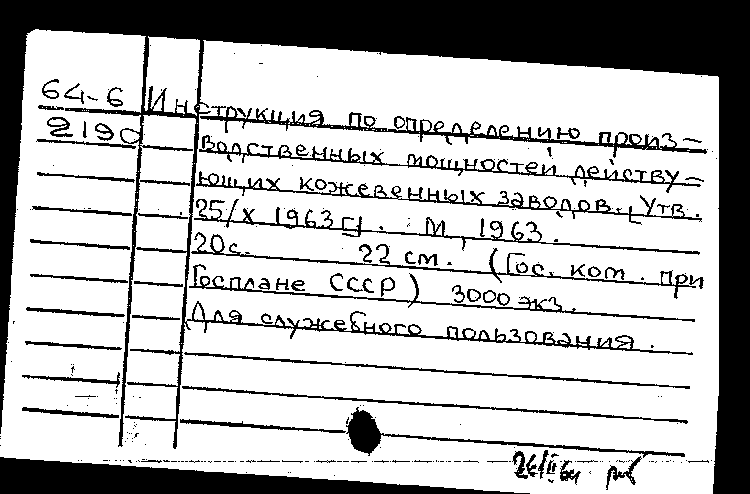 64-6 Инструкция по определению произ=
2190 водственных мощностей действу=
ющих кожевенных заводов. [Утв.
25/X 1963 г]. М, 1963.
20с. 22 см. (Гос. ком. при
Госплане СССР) 3000 экз.
Для служебного пользования.
26/II 64